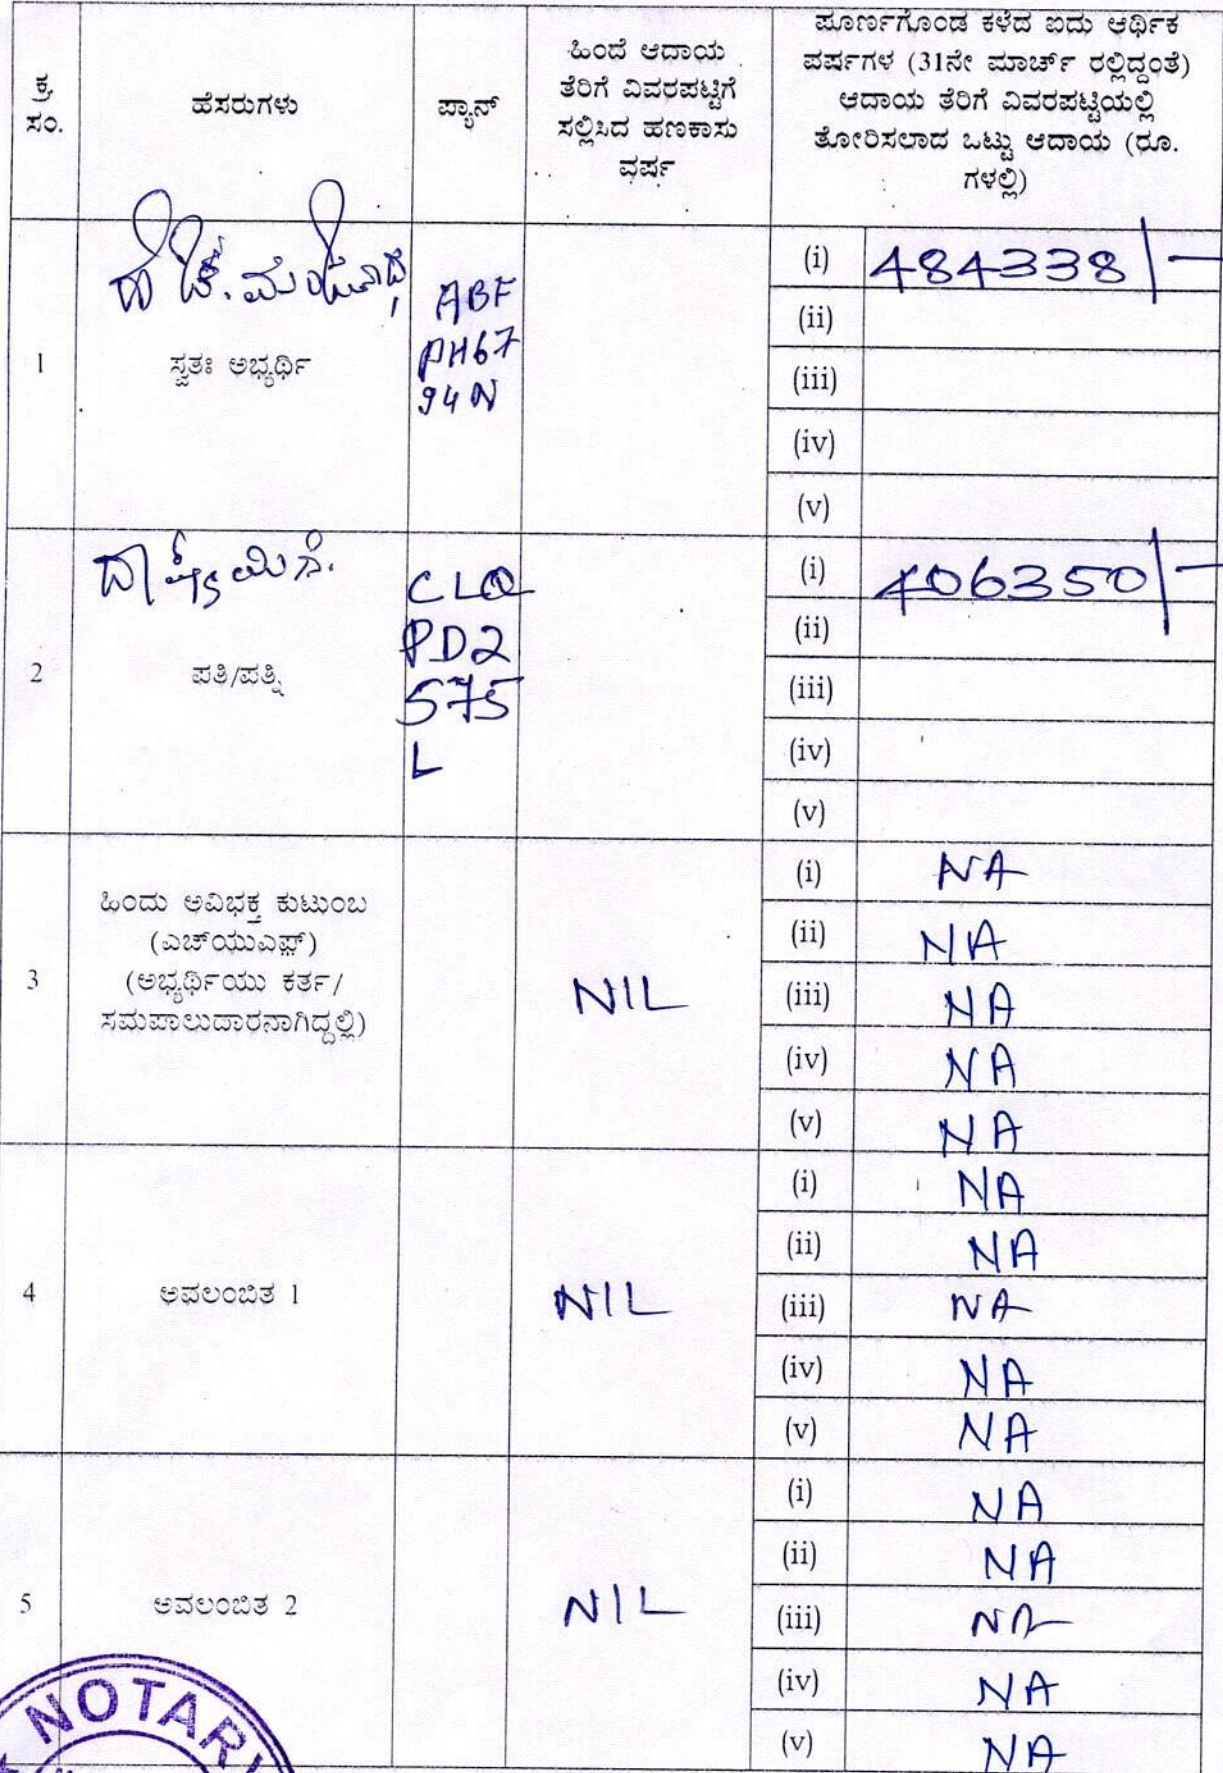 ಕ್ರ. ಸಂ.
ಹೆಸರುಗಳು
ಪ್ಯಾನ್
ಹಿಂದೆ ಆದಾಯ
ತೆರಿಗೆ ವಿವರಪಟ್ಟಿಗೆ
ಸಲ್ಲಿಸಿದ ಹಣಕಾಸು
ವರ್ಷ
ಪೂರ್ಣಗೊಂಡ ಕಳೆದ ಐದು ಆರ್ಥಿಕ
ವರ್ಷಗಳ (31ನೇ ಮಾರ್ಚ್ ರಲ್ಲಿದ್ದಂತೆ)
ಆದಾಯ ತೆರಿಗೆ ವಿವರಪಟ್ಟಿಯಲ್ಲಿ
ತೋರಿಸಲಾದ ಒಟ್ಟು ಆದಾಯ (ರೂ.
ಗಳಲ್ಲಿ)
1
ಸ್ವತಃ ಅಭ್ಯರ್ಥಿ
ABF
PH67
94N
(i) 484338/-
(ii)
(iii)
(iv)
(v)
2
ಪತಿ/ಪತ್ನಿ
CLQ
PD2
575
L
(i) 406350/-
(ii)
(iii)
(iv)
(v)
3
ಹಿಂದು ಅವಿಭಕ್ತ ಕುಟುಂಬ
(ಎಚ್‌ಯುಎಫ್)
(ಅಭ್ಯರ್ಥಿಯು ಕರ್ತ/
ಸಮಪಾಲುದಾರನಾಗಿದ್ದಲ್ಲಿ)
NIL
(i) NA
(ii) NA
(iii) NA
(iv) NA
(v) NA
4
ಅವಲಂಬಿತ 1
NIL
(i) NA
(ii) NA
(iii) NA
(iv) NA
(v) NA
5
ಅವಲಂಬಿತ 2
NIL
(i) NA
(ii) NA
(iii) NA
(iv) NA
(v) NA
NOTAR